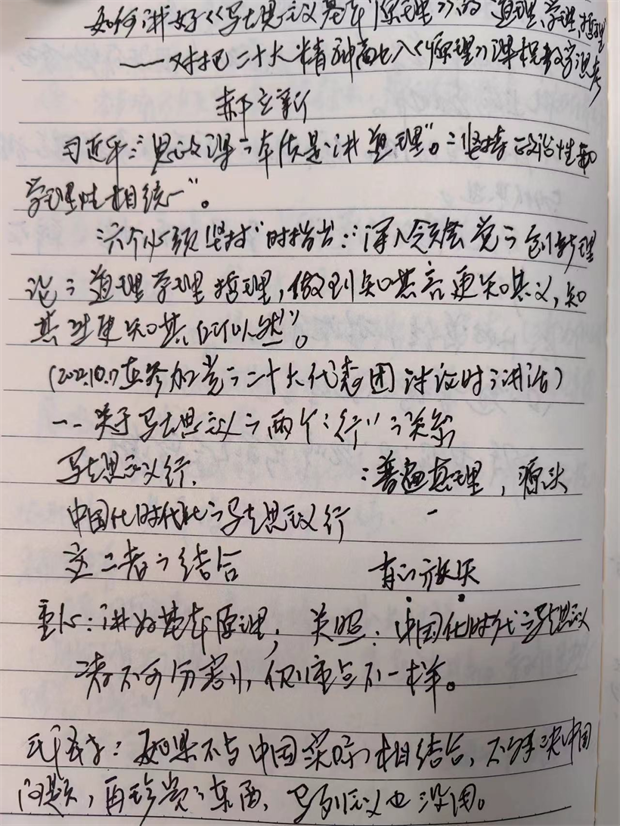 如何讲好《马克思主义基本原理》的道理、学理、哲理
——对把二十大精神融入《原理》课程教学思考
郝立新
习近平：“思政课的本质是讲道理”。“坚持政治性和
学理性相统一”。
“六个必须坚持”时指出：“深入领会党的创新理
论的道理学理哲理，做到知其言更知其义，知
其然更知其所以然”。
(2022.10.17在参加党的二十大代表团讨论时的讲话)
一、关于马克思主义的两个“行”的关系
马克思主义行. ：普遍真理，源头
中国化时代化的马克思主义行
这二者的结合
重心：讲好基本原理，关照：中国化时代的马克思主义
二者不可分割，仅重点不一样。
毛泽东：如果不与中国实际相结合，不解决中国
问题，再珍贵的东西，马列主义也没用。